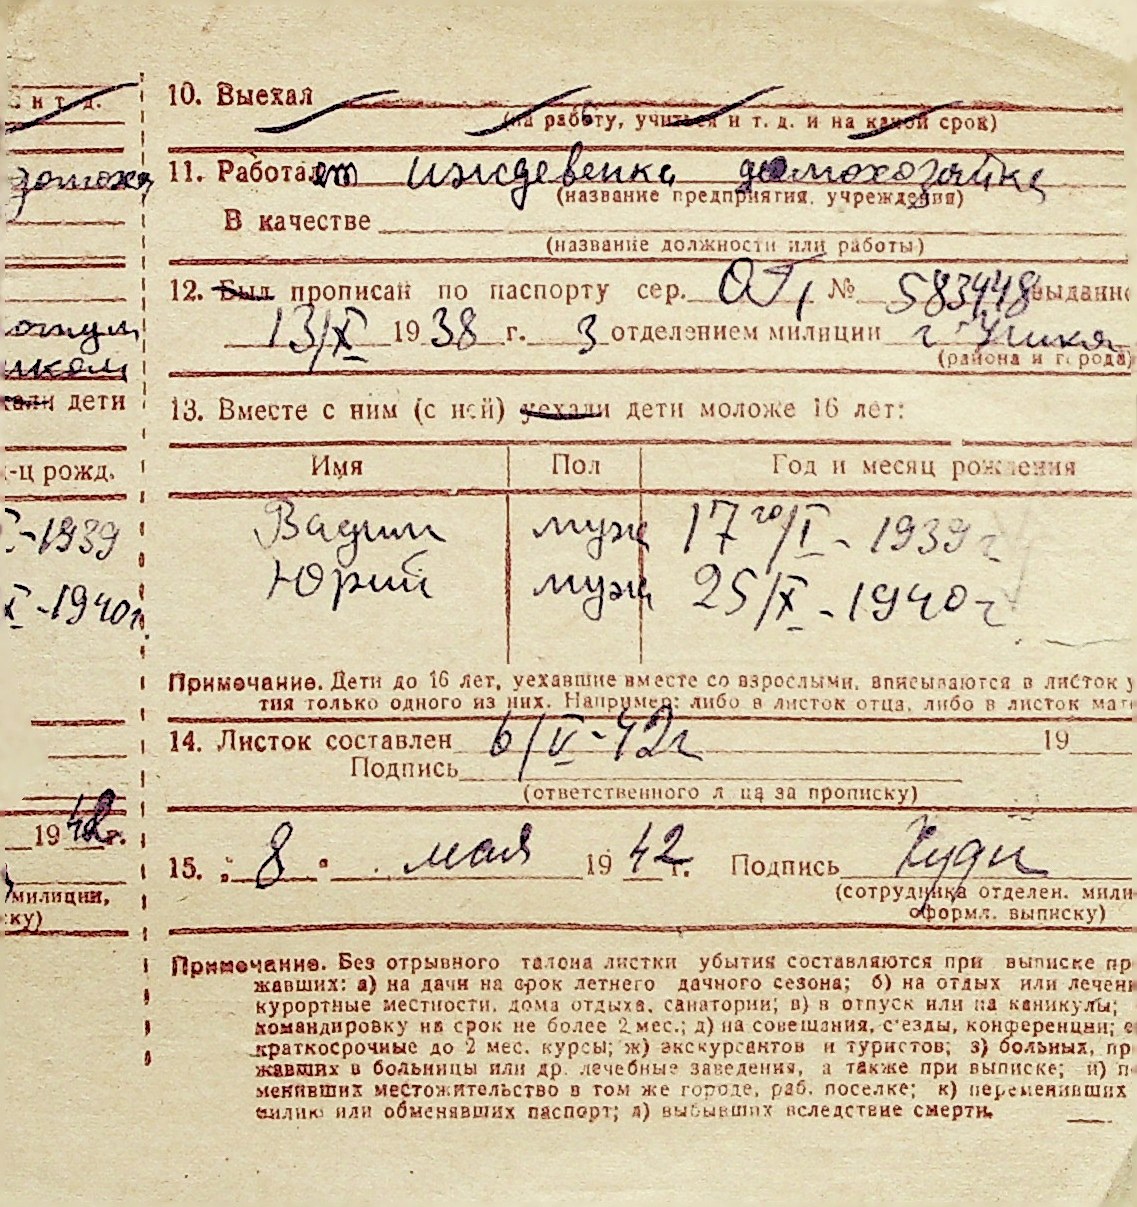 и т. д.
10. Выехал
(на работу, учиться и т. д. и на какой срок)
11. Работает иждевенка домохозайка
(название предприятия, учреждения)
В качестве
(название должности или работы)
12. Был прописан по паспорту сер. № 583448 выданно
13/X 1938 г. 3 отделением милиции г.
(района и города)
дети
13. Вместе с ним (с ней) уехали дети моложе 16 лет:
-ц рожд.
Имя Пол Год и месяц рождения
-1939
Вадим муж 17го/I - 1939 г
X-1940г.
Юрий муж 25/X - 1940 г
Примечание. Дети до 16 лет, уехавшие вместе со взрослыми, вписываются в листок у
тия только одного из них. Например: либо в листок отца, либо в листок мат
14. Листок составлен 6/V-42г 19
Подпись
(ответственного лица за прописку)
1942г.
15. „8" мая 1942 г. Подпись
милиции,
(сотрудника отделен. мили
ску)
оформл. выписку)
Примечание. Без отрывного талона листки убытия составляются при выписке пр
жавших: а) на дачи на срок летнего дачного сезона; б) на отдых или лечени
курортные местности, дома отдыха, санатории; в) в отпуск или на каникулы;
командировку на срок не более 2 мес.; д) на совещания, с'езды, конференции; е
краткосрочные до 2 мес. курсы; ж) экскурсантов и туристов; з) больных, пр
жавших в больницы или др. лечебные заведения, а также при выписке; и) п
менивших местожительство в том же городе, раб. поселке; к) переменивших
милию или обменявших паспорт; л) выбывших вследствие смерти.